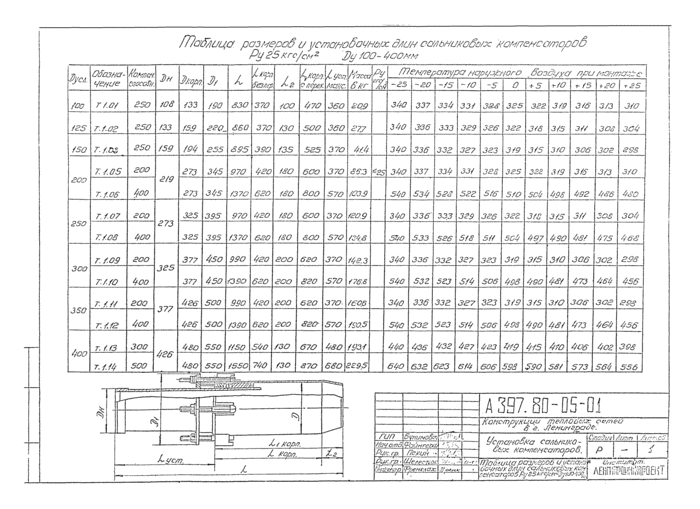 Таблица размеров и установочных длин сальниковых компенсаторов
Ру 25 кгс/см² Ду 100-400мм
Ду сл. Обозна-чение Компен. способн. Dн Dкорп. D1 L L корп. L2 L корп. L уст. макс. Масса в кг Температура наружного воздуха при монтаже
-25 -20 -15 -10 -5 0 +5 +10 +15 +20 +25
100 Т.1.01 250 108 133 190 830 370 100 470 360 340 337 334 331 328 325 322 319 316 313 310
125 Т.1.02 250 133 159 220 860 370 130 500 360 340 336 333 329 326 322 318 315 311 308 304
150 Т.1.03 250 159 194 255 895 390 135 525 370 41.4 340 336 332 327 323 319 315 310 306 302 298
200 Т.1.05 200 219 273 345 970 420 180 600 370 86.3 ≤25 340 337 334 331 328 325 322 319 316 313 310
Т.1.06 400 273 345 1370 620 180 800 570 103.9 540 534 528 522 516 510 504 498 492 486 480
250 Т.1.07 200 273 325 395 970 420 180 600 370 340 336 333 329 326 322 318 315 311 308 304
Т.1.08 400 325 395 1370 620 180 800 570 540 533 526 518 511 504 497 490 481 475 468
300 Т.1.09 200 325 377 450 990 420 200 620 370 142.3 340 336 332 327 323 319 315 310 306 302 298
Т.1.10 400 377 450 1390 620 200 820 570 176.8 540 532 523 514 506 498 490 481 473 464 456
350 Т.1.11 200 377 426 500 990 420 200 620 370 340 336 332 327 323 319 315 310 306 302 298
Т.1.12 400 426 500 1390 620 200 820 570 540 532 523 514 506 498 490 481 473 464 456
400 Т.1.13 300 426 480 550 1150 540 130 670 480 193.1 440 436 432 427 423 419 415 410 406 402 398
Т.1.14 500 480 550 1550 740 130 870 680 229.5 640 632 623 614 606 598 590 581 573 564 556
Dн D1 D
L1 корп.
L корп. L2
L уст.
L
А 397.80-05-01
Конструкции тепловых сетей
в г. Ленинграде.
Установка сальнико-
вых компенсаторов.
Стадия Лист Листов
Р - 1
ГИП
Рук. гр.
Рук. гр.
Таблица размеров и устано-
вочных длин сальниковых ком-
пенсаторов
Институт